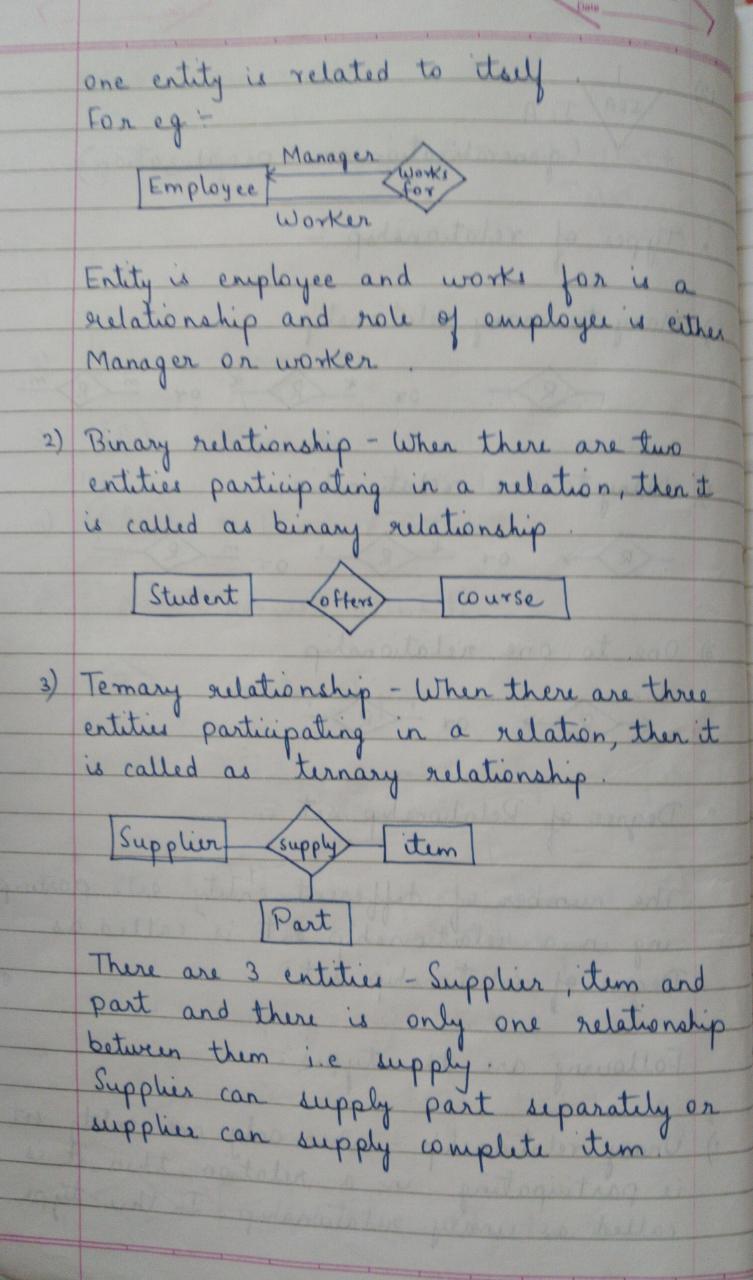 one entity is related to itself.
For eg :-
Manager
Employee
Works for
Worker
Entity is employee and works for is a
relationship and role of employee is either
Manager or worker.
2) Binary relationship - When there are two
entities participating in a relation, then it
is called as binary relationship.
Student offers course
3) Ternary relationship - When there are three
entities participating in a relation, then it
is called as ternary relationship.
Supplier supply item
Part
There are 3 entities - Supplier, item and
part and there is only one relationship
between them i.e supply.
Supplier can supply part separately or
supplier can supply complete item.